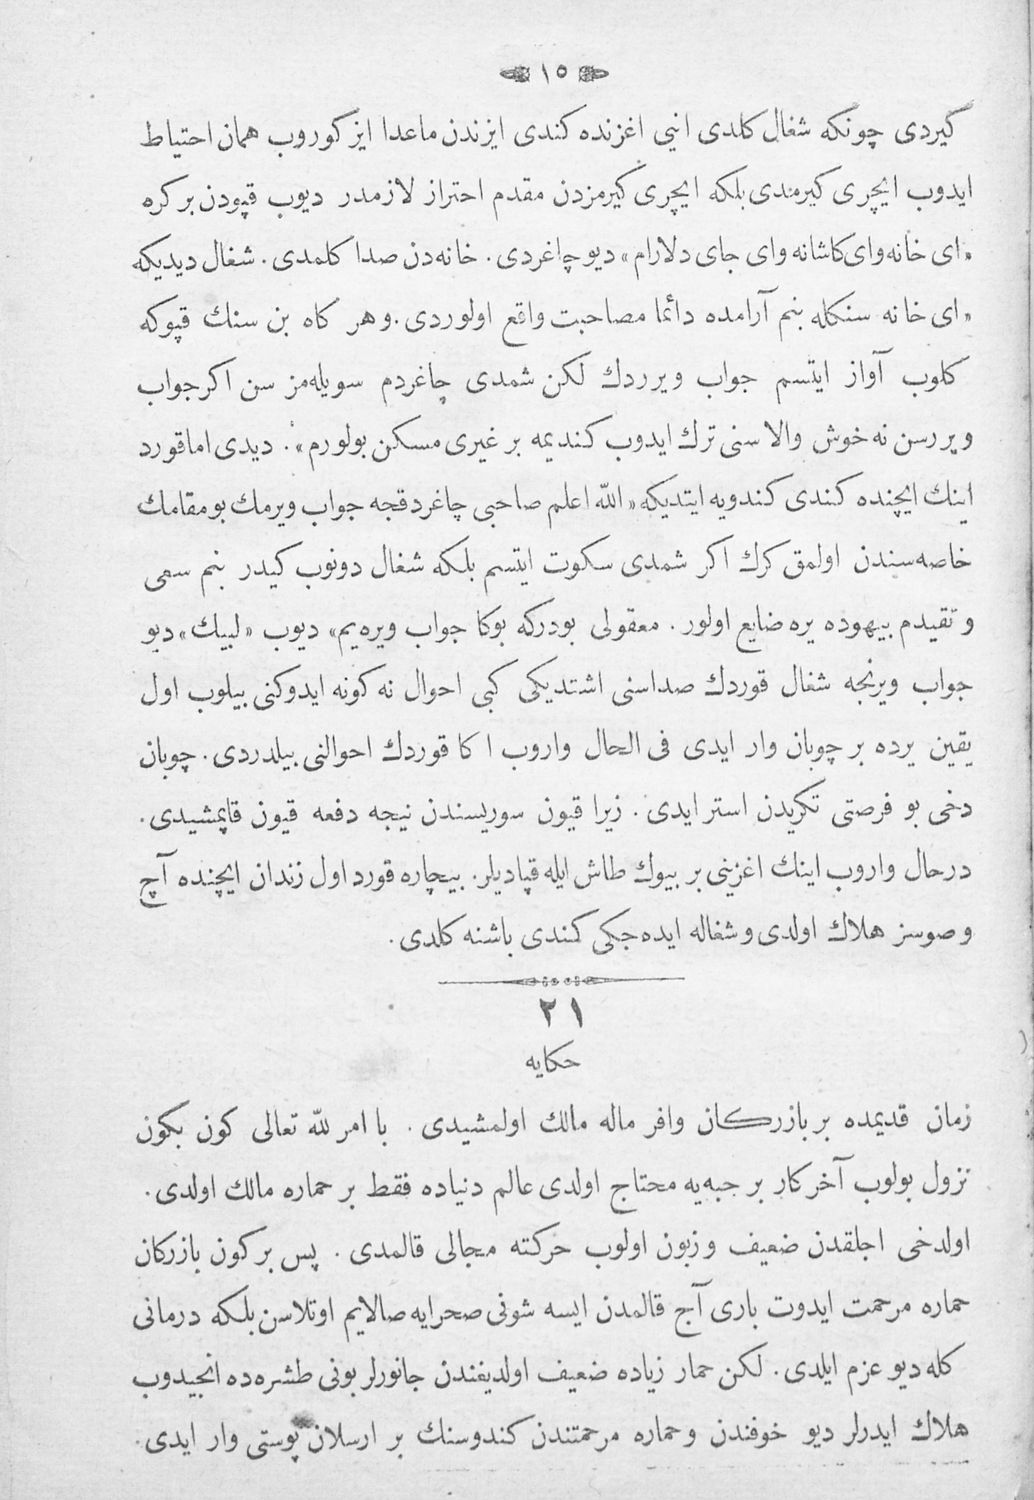 ١٥
گیردی چونکه شغال کلدی اینی اغزنده کندی ایزندن ماعدا ایز کوروب همان احتیاط
ایدوب ایچری کیرمندی بلکه ایچری گیرمزدن مقدم احتراز لازمدر دیوب قپودن بر کره
«ای خانه وای کاشانه وای جای دلارام» دیو چاغردی . خانه‌دن صدا کلمدی . شغال دیدیکه
«ای خانه سنکله بنم آرامده دائما مصاحبت واقع اولوردی . و هر کاه بن سنك قپوکه
کلوب آواز ایتسم جواب ویرردك لکن شمدی چاغردم سویله‌مز سن اکر جواب
ویررسن نه خوش والا سنی ترك ایدوب کندیمه بر غیری مسکن بولورم» . دیدی اما قورد
اینك ایچنده کندی کندویه ایتدیکه «الله اعلم صاحبی چاغردقجه جواب ویرمك بو مقامك
خاصه‌سندن اولمق کرك اکر شمدی سکوت ایتسم بلکه شغال دونوب کیدر بنم سعی
و تقیدم بیهوده یره ضایع اولور . معقولی بودرکه بوکا جواب ویره‌یم» دیوب «لبیك» دیو
جواب ویرنجه شغال قوردك صداسنی اشتدیکی کبی احوال نه کونه ایدوکنی بیلوب اول
یقین یرده بر چوبان وار ایدی فی الحال واروب ا کا قوردك احوالنی بیلدردی . چوبان
دخی بو فرصتی تکریدن استر ایدی . زیرا قیون سوریسندن نیجه دفعه قیون قاپمشیدی .
درحال واروب اینك اغزینی بر بیوك طاش ایله قپادیلر . بیچاره قورد اول زندان ایچنده آچ
و صوسز هلاك اولدی و شغاله ایده‌جکی کندی باشنه کلدی .
٢١
حکایه
زمان قدیمده بر بازرکان وافر ماله مالك اولمشیدی . با امر لله تعالی کون بکون
نزول بولوب آخر کار بر حبه‌یه محتاج اولدی عالم دنیاده فقط بر حماره مالك اولدی .
اولدخی اجلقدن ضعیف و زبون اولوب حرکته مجالی قالمدی . پس بر کون بازرکان
حماره مرحمت ایدوت باری آج قالمدن ایسه شونی صحرایه صالایم اوتلاسن بلکه درمانی
کله دیو عزم ایلدی . لکن حمار زیاده ضعیف اولدیغندن جانورلر بونی طشره‌ده انجیدوب
هلاك ایدرلر دیو خوفندن و حماره مرحمتندن کندوسنك بر ارسلان پوستی وار ایدی .